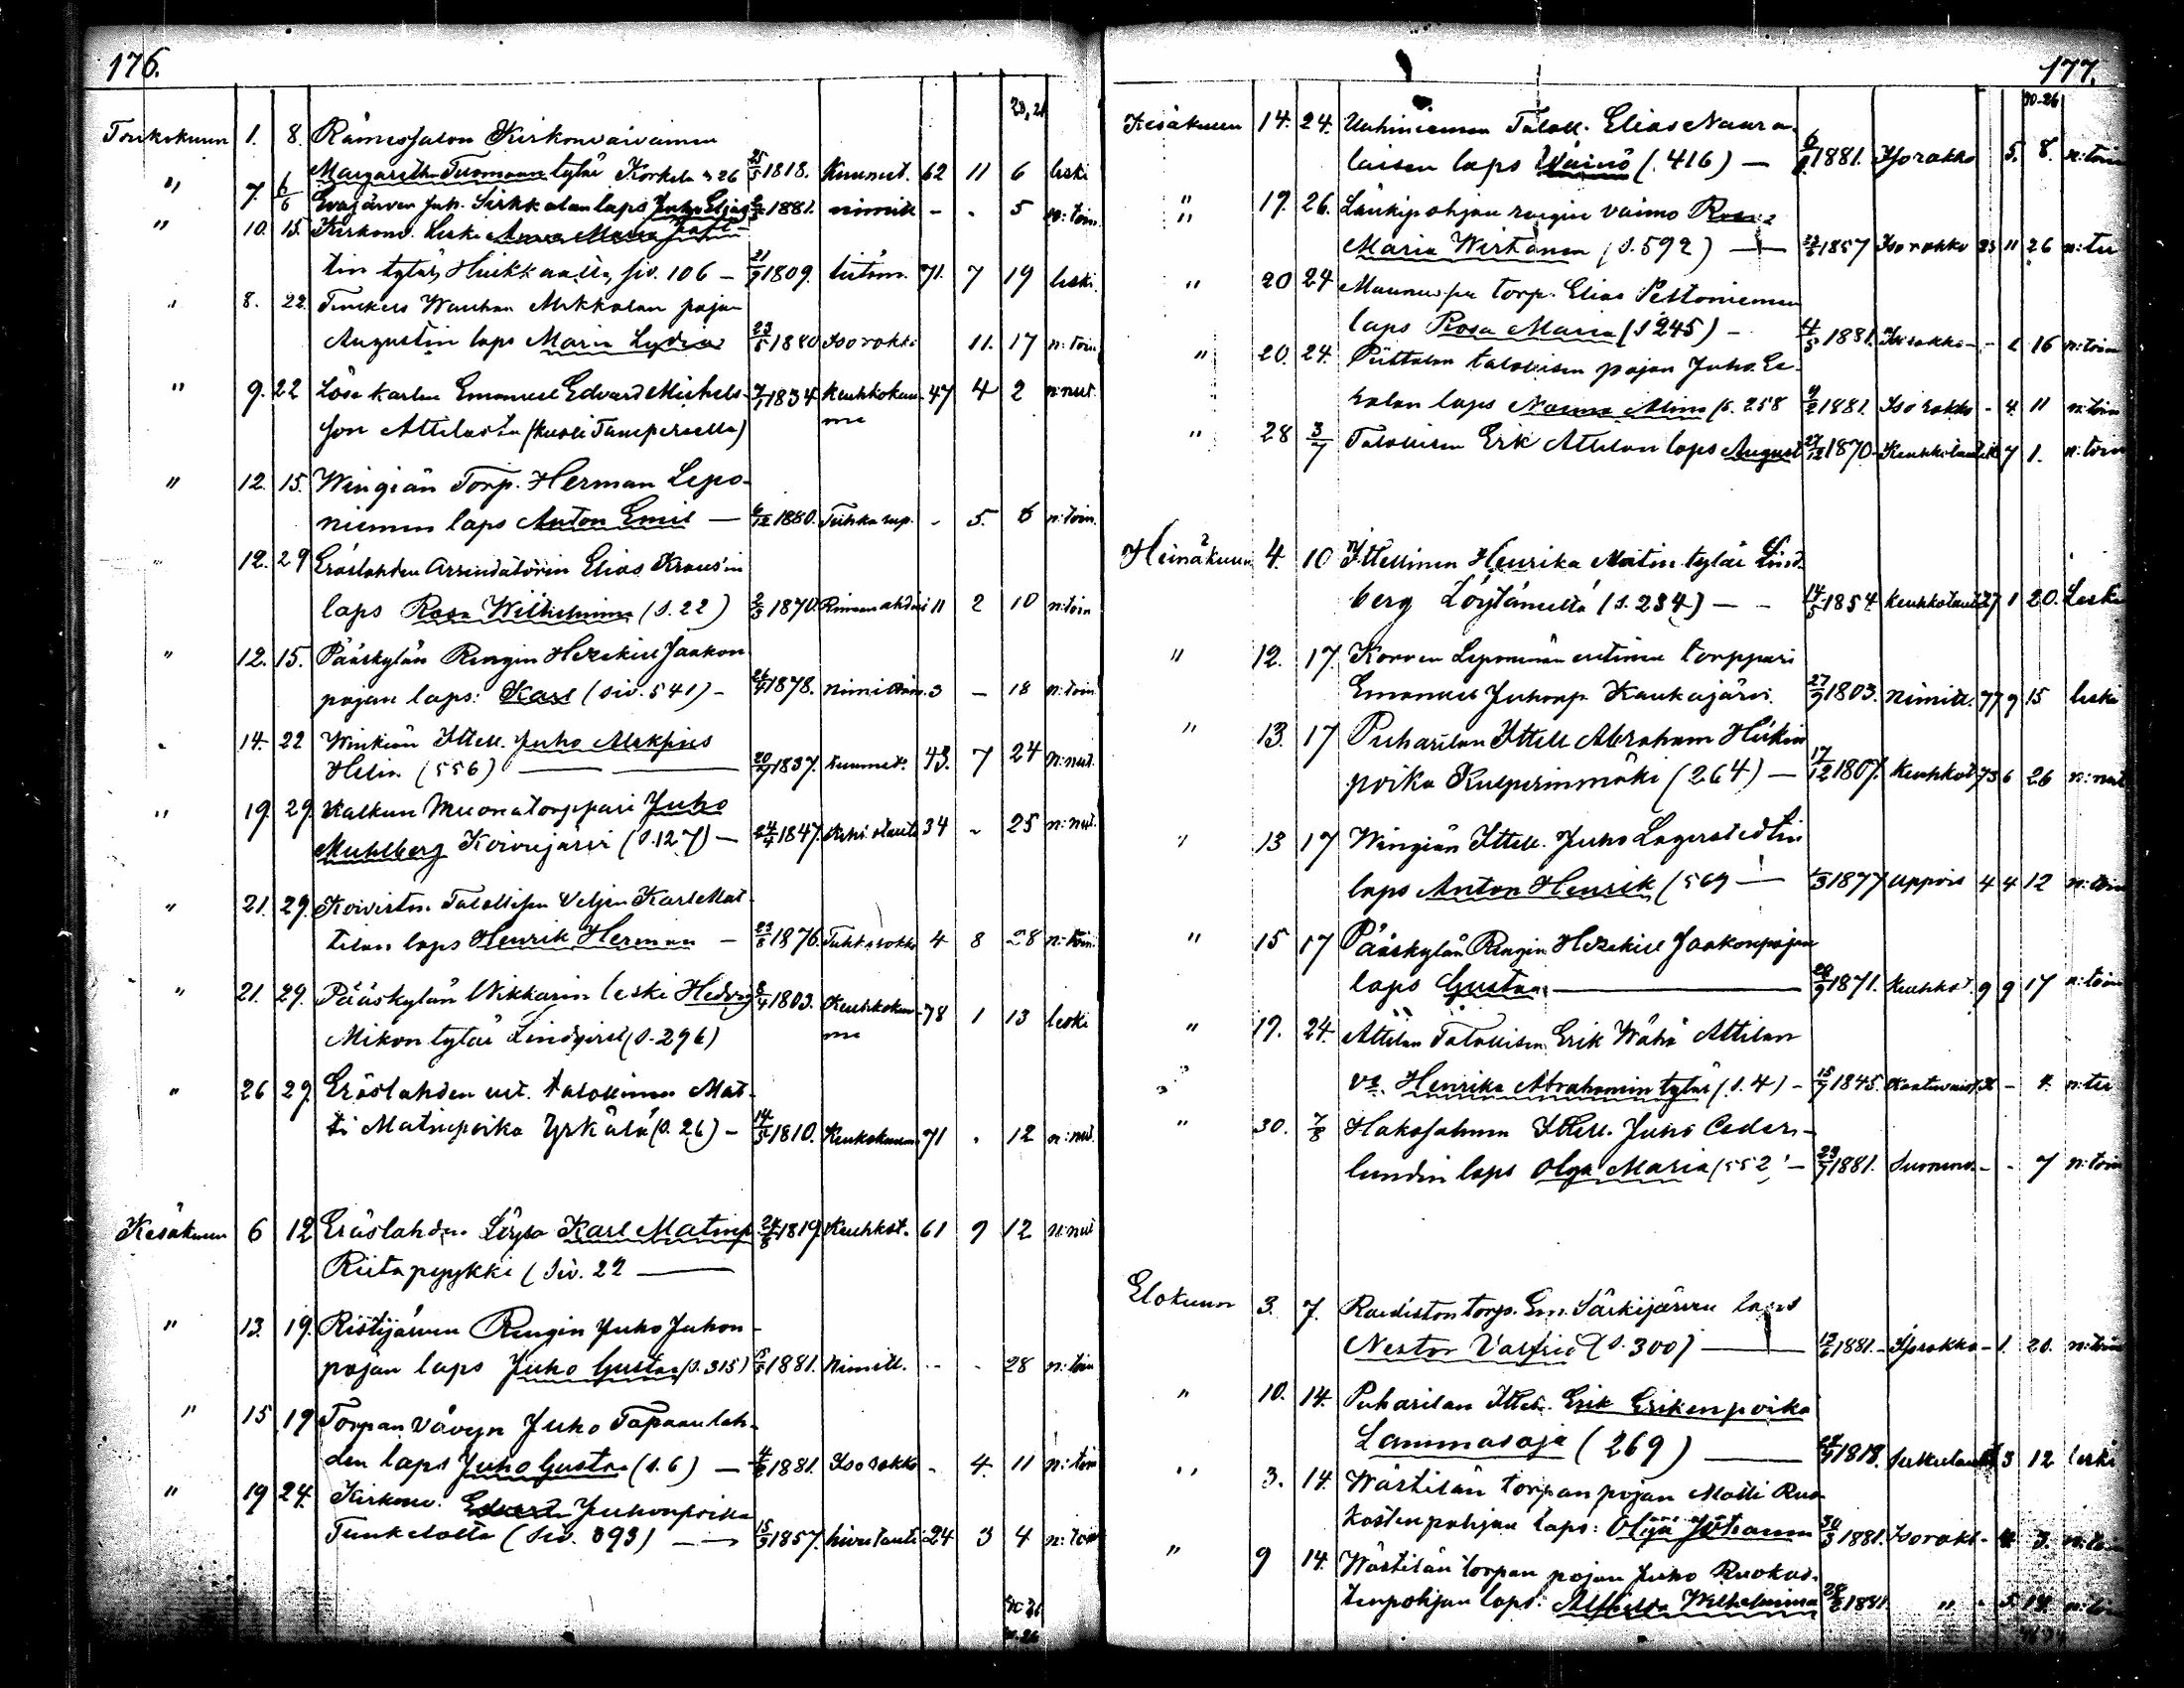 176.
Toukokuun 1. 8. Rämessalon Kirkonvaivainen
Margaretha Tuomaan tytär Korkela s 26 25/5 1818. Kuumet. 62 11 6 leski
" 7. 6/6 Evajärven Juh. Sirkkalan laps Juho Elias 1881. nimitt - - 5 n: toin
" 10. 15. Kirkonv. Leski Anna Maria
tin tytär, Huikkaalta, siv. 106 – 21/9 1809. 71. 7 19 leski
" 8. 22. Mikkolan pojan
Augustin laps Maria Lydia 23/5 1880 Isorokko 11. 17 n: toin
" 9. 22 Löse karlen Emanuel Edvard Michels- 7/1 1834 Keuhkokuu- 47 4 2 n: nut.
son Attilasta (kuoli Tampereella) me
" 12. 15. Wingiän Torp. Herman Lepo-
niemen laps Anton Emil — 6/12 1880. Tuhka rup. - 5. 6 n: toin.
" 12. 29 Eräslahden Arrendatorin Elias Kraus'in
laps Rosa Wilhelmina (s. 22) 2/3 1870. Rinnan ahdist 11 2 10 n: toin
" 12. 15. Pääskylän Rengin Hezekiel Jaakon
pojan laps: Karl (siv. 541) – 1878. Nimitöin. 3 – 18 n: toin
" 14. 22 Winkiän Ittell. Juho
Helin (556) — 20/9 1837. Kuumet. 43. 7 24 n: nut.
" 19. 29. Kalkun Muonatorppari Juho
Muhlberg Koivujärvi (s. 127) — 24/4 1847. 34 - 25 n: nut.
" 21. 29. Koiviston Talollisen Veljen Karl Mat-
tilan laps Henrik Herman – 23/8 1876. Tuhkarokko 4 8 28 n: toin.
" 21. 29. Pääskylän Nikkarin leski Hedvig 8/4 1803. Keuhkokuu- 78 1 13 leski
Mikon tytär Lindqvist (s. 296) me
" 26 29. Eräslahden ent. talokkinen Mat-
ti Matinpoika Yrkälä (s. 26) – 14/5 1810. Keuhkokuum 71 - 12 n: nut.
Kesäkuun 6 12 Eräslahden Karl Matinp. 24/8 1819. Keuhkot. 61 9 12 n: nut
Riitapyykki (Siv. 22 —
" 13. 19. Ristijärven Rengin Juho Juhon-
pojan laps Juho Gustav (s. 315) 1881. Nimitt. - - 28 n: toin
" 15 19 Torpan Vävyn Juho Tapaan lah-
den laps Juho Gustav (s. 6) — 1881. Isorokko - 4. 11 n: toin
" 19 24. Kirkonv. Edvard Juhonpoika
(siv. 393) — 15/3 1857. hivutauti 24 3 4 n: toin
177.
Kesäkuun 14. 24. Uuhiniemen Taloll. Elias Naura-
laisen laps Wäinö (s. 416) — 1881. Isorokko 5. 8. n: toin
" 19. 26. Länkipohjan rengin vaimo Rosa
Maria Wirtanen (s. 592) — 1857 Isorokko 23 11 26 n: tu
" 20 24 torp. Elias Peltoniemen
laps Rosa Maria (s 245) – 1881. Isorokko - 2 16 n: toin
" 20. 24. Pittalan talollisen pojan Juho
kolan laps Naema Alina (s. 258 9/2 1881. Isorokko - 4. 11 n: toin
" 28 3/7 Talollisen Erik Attilan laps August 27/12 1870 Keuhkotauti 7 1. n: toin
Heinäkuun 4. 10 Ittellinen Henrika Matin tytär Lind-
berg Löytäneeltä (s. 234) — 14/5 1854 Keuhkotauti 27 1 20. Leski
" 12. 17. Korven Leponiemän entinen torppari
Emanuel Juhonp. Kaukajärvi. 27/9 1803. Nimitt. 77 9 15 leski
" 13. 17 Puharilan Ittell. Abraham Heikin
poika Kulperinmäki (264) — 17/12 1807. Keuhkot 73 6 26 n: nut
" 13 17 Wingiän Ittell. Juho Lagerstedtin
laps Anton Henrik (569 — 1/3 1877 uppois 4 4 12 n: toin
" 15 17 Pääskylän Rengin Hezekiel Jaakonpojan
laps Gustaa — 28/9 1871. Keuhkot. 9 9 17 n: toin
" 19. 24. Attilan Talollisen Erik Wähä Attilan
vo. Henrika Abrahamin tytär (s. 4) – 15/7 1845. - 4. n: tu
" 30. 7/8 Hakosalmen Ittell. Juho Ceder-
lundin laps Olga Maria (552) – 23/7 1881. - - 7 n: toin
Elokuun 3. 7. Raidiston torp. Em. Särkijärven laps
Nestor Valfrid (s. 300) — 13/6 1881. Isorokko - 1. 20. n: toin
" 10. 14. Puharilan Ittell. Erik Erikinpoika
Lammasoja (269) — 1818. 3 12 leski
" 3. 14. Wästilän torpan pojan Matti Ruo-
kostenpohjan laps: Olga Johanna 30/3 1881. Isorokk - 4. 3. n: toin
" 9 14. Wästilän torpan pojan Juho Ruokos-
tenpohjan laps: Mathilda Wilhelmina 1881 " - 5 14 n: toin